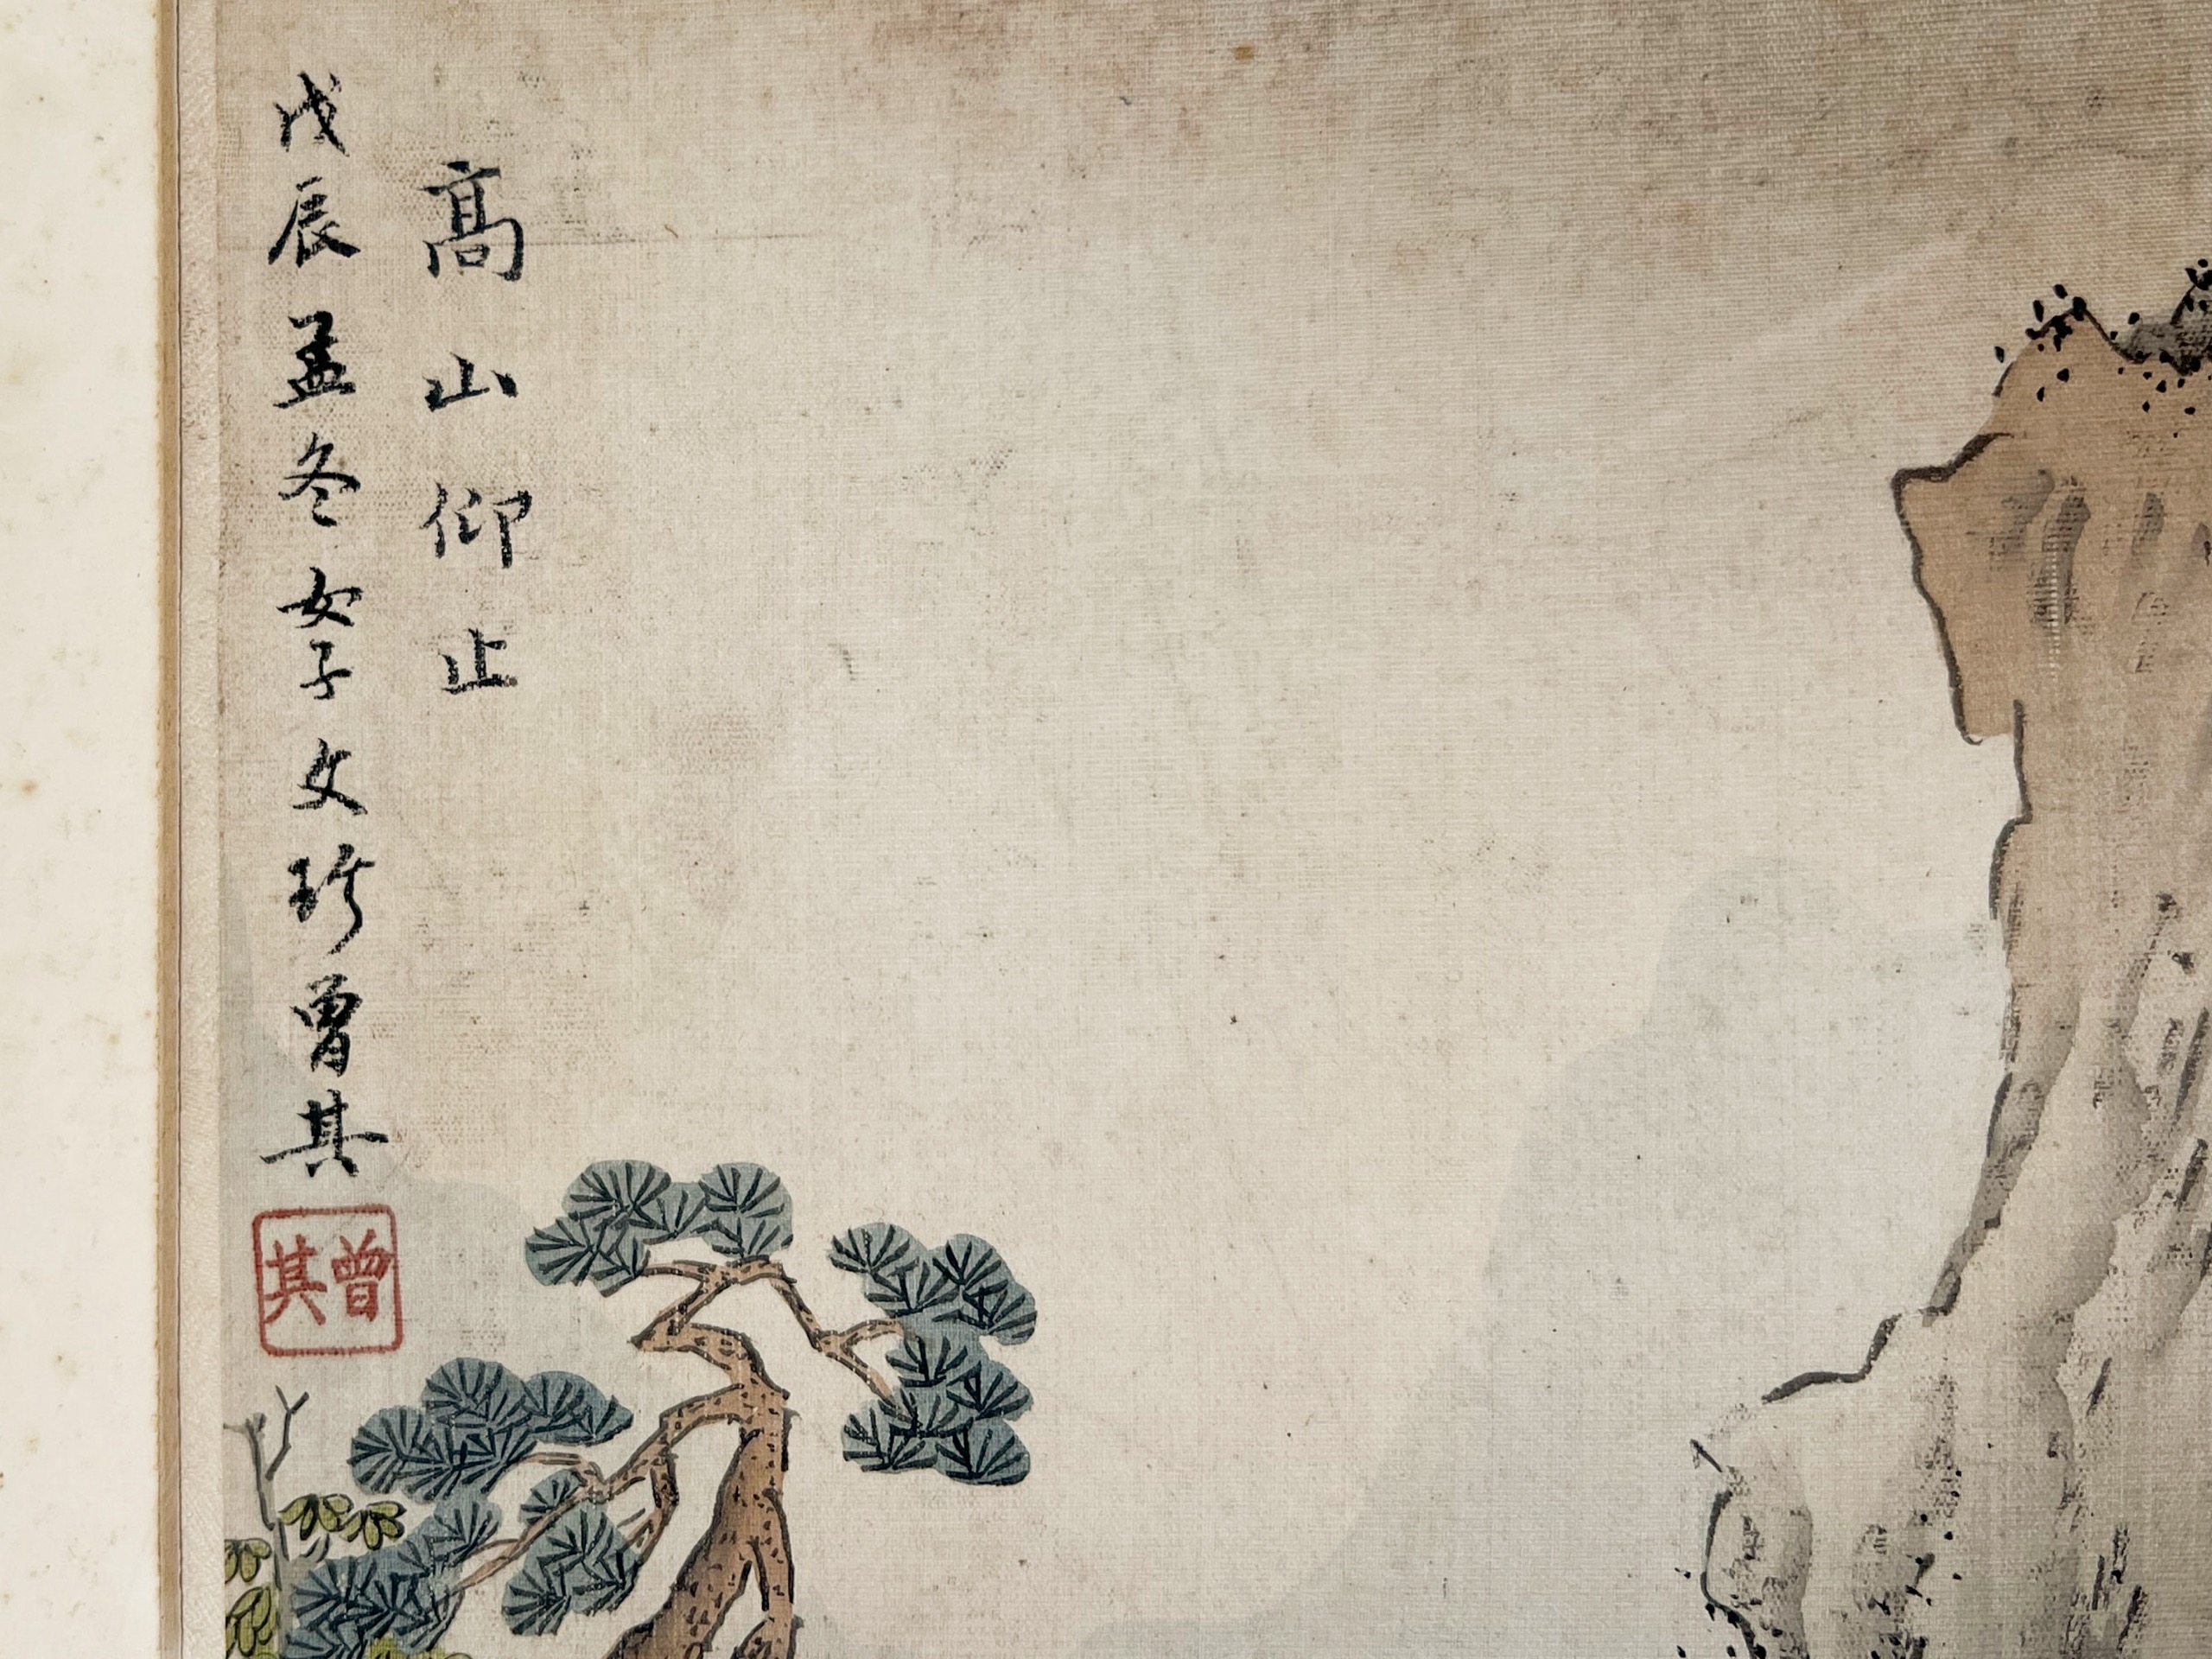 高山仰止
戊辰孟冬女子文珍曾其
曾其